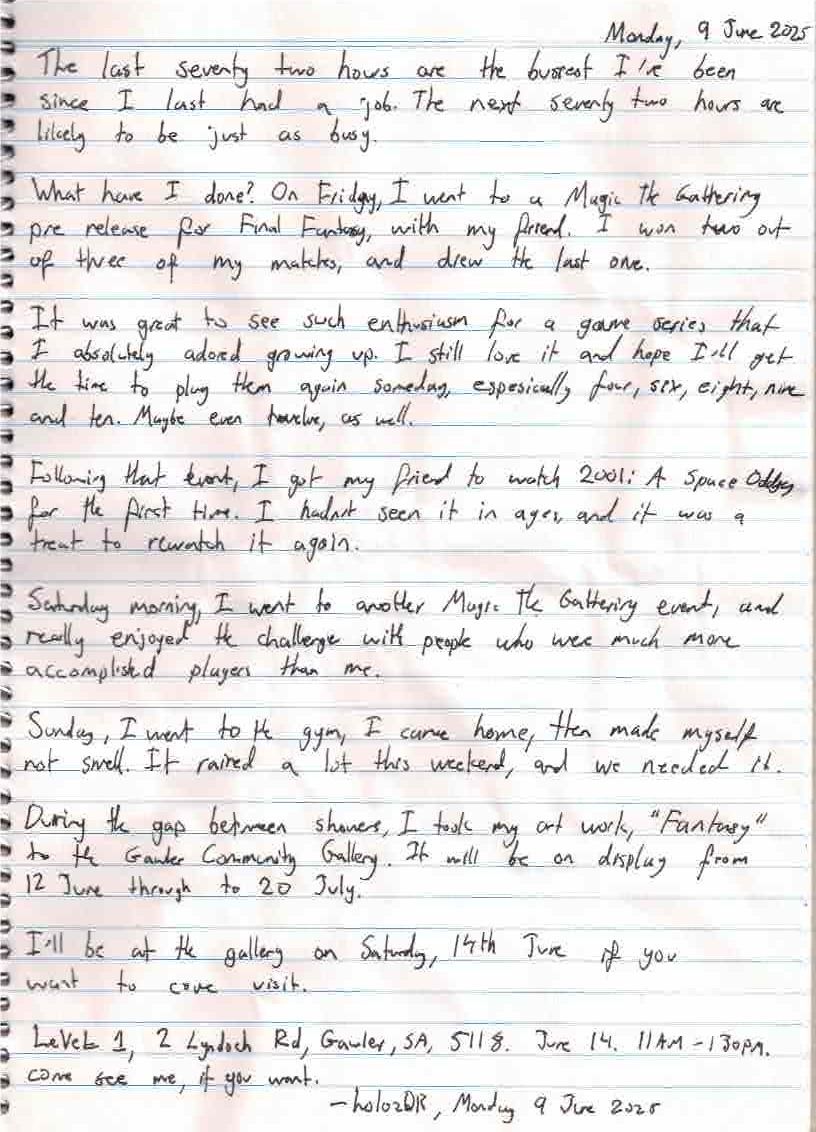 Monday, 9 June 2025
The last seventy two hours are the busiest I've been
since I last had a job. The next seventy two hours are
likely to be just as busy.
What have I done? On Friday, I went to a Magic The Gathering
pre release for Final Fantasy, with my friend. I won two out
of three of my matches, and drew the last one.
It was great to see such enthusiasm for a game series that
I absolutely adored growing up. I still love it and hope I'll get
the time to play them again someday, espesically four, six, eight, nine
and ten. Maybe even twelve, as well.
Following that event, I got my friend to watch 2001: A Space Oddsey
for the first time. I hadn't seen it in ages, and it was a
treat to rewatch it again.
Saturday morning, I went to another Magic The Gathering event, and
really enjoyed the challenge with people who were much more
accomplished players than me.
Sunday, I went to the gym, I came home, then made myself
not smell. It rained a lot this weekend, and we needed it.
During the gap between showers, I took my art work, "Fantasy"
to the Gawler Community Gallery. It will be on display from
12 June through to 20 July.
I'll be at the gallery on Saturday, 14th June if you
want to come visit.
Level 1, 2 Lyndoch Rd, Gawler, SA, 5118. June 14. 11AM - 130PM.
come see me, if you want.
- holoz0R, Monday 9 June 2025